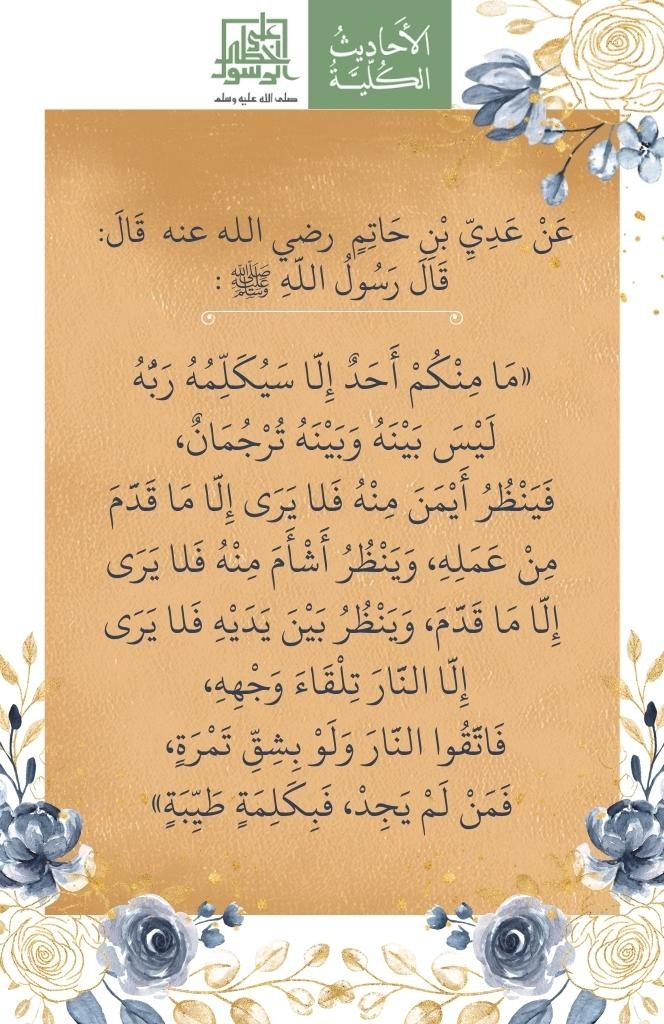 الأَحَادِيثُ
الكُلِّيَّةُ
على
خطى
الرسول
صلى الله عليه وسلم
عَنْ عَدِيِّ بْنِ حَاتِمٍ رضي الله عنه قَالَ:
قَالَ رَسُولُ اللّهِ ﷺ :
«مَا مِنْكُمْ أَحَدٌ إِلّا سَيُكَلِّمُهُ رَبُّهُ
لَيْسَ بَيْنَهُ وَبَيْنَهُ تُرْجُمَانٌ،
فَيَنْظُرُ أَيْمَنَ مِنْهُ فَلا يَرَى إِلّا مَا قَدّمَ
مِنْ عَمَلِهِ، وَيَنْظُرُ أَشْأَمَ مِنْهُ فَلا يَرَى
إِلّا مَا قَدّمَ، وَيَنْظُرُ بَيْنَ يَدَيْهِ فَلا يَرَى
إِلّا النّارَ تِلْقَاءَ وَجْهِهِ،
فَاتّقُوا النّارَ وَلَوْ بِشِقِّ تَمْرَةٍ،
فَمَنْ لَمْ يَجِدْ، فَبِكَلِمَةٍ طَيِّبَةٍ»